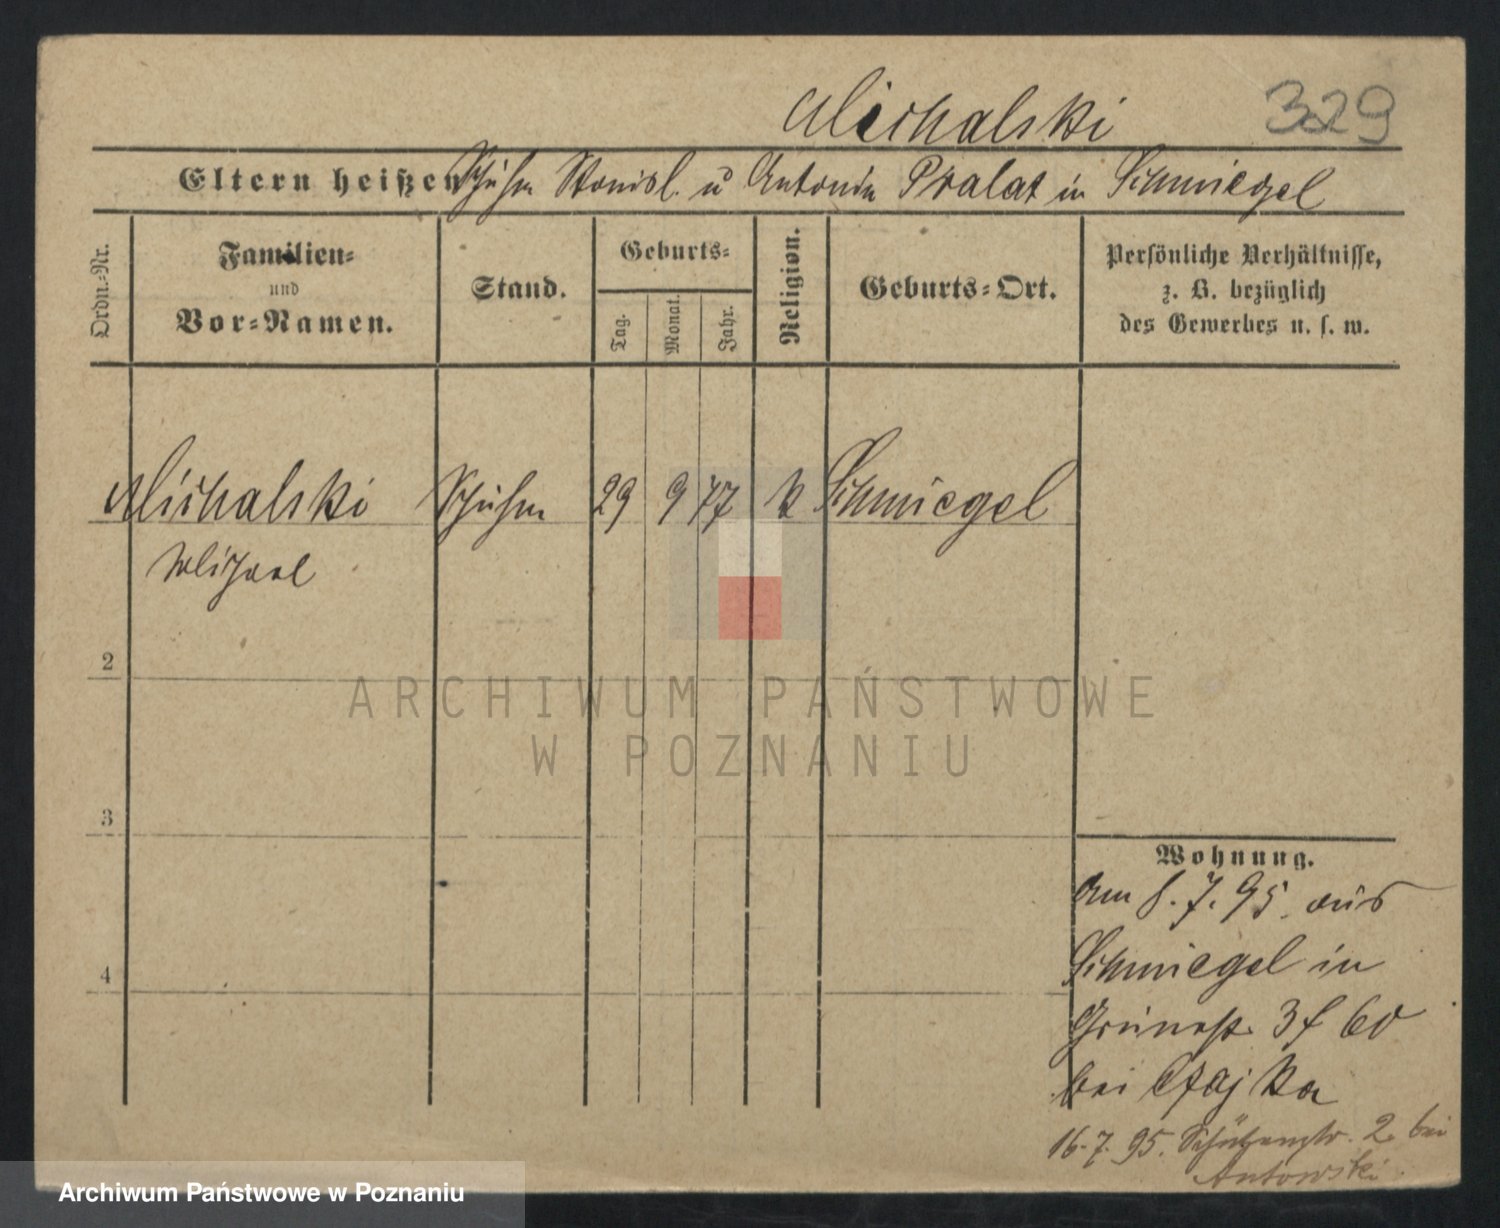 Michalski 329
Eltern heißen Schuhm Stanisl. u Antonin Pralat in Schmiegel
Ordn.-Nr.
Familien-
und
Vor-Namen.
Stand.
Geburts-
Tag.
Monat.
Jahr.
Religion.
Geburts-Ort.
Persönliche Verhältnisse,
z. B. bezüglich
des Gewerbes u. s. w.
Michalski Schuhm 29 9 77 k Schmiegel
Michael
2
3
4
Wohnung.
Am 8. 7. 95. aus
Schmiegel in
Grünestr. 3
bei Czajka
16. 7. 95. Schützenstr. 2 bei
Antowski
ARCHIWUM PAŃSTWOWE
W POZNANIU
Archiwum Państwowe w Poznaniu